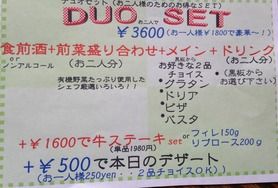 デュオセット(お二人様のためのお得なSET)
DUO SET
お二人で
¥3600(お一人様¥1800で豪華~!)
食前酒+前菜盛り合わせ+メイン+ドリンク
or
ノンアルコール(お二人分)
(お二人分)
有機野菜たっぷり使用した
シェフ厳選いろいろ!!
黒板から
お好きな2品
チョイス
(黒板からお選び下さい)
・グラタン
・ドリア
・ピザ
・パスタ
+¥1600で牛ステーキset
(単品1980円)
or フィレ150g
リブロース200g
+¥500で本日のデザート
(お一人様250yen・・2品チョイスOK!)